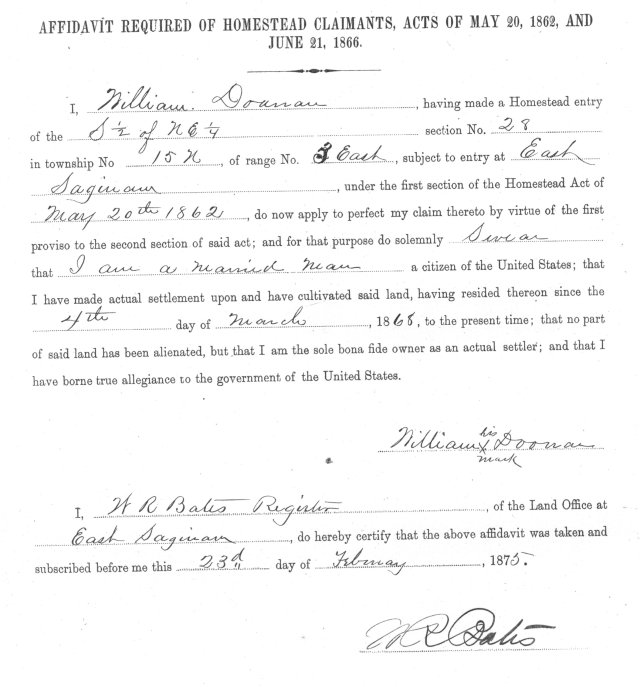 AFFIDAVIT REQUIRED OF HOMESTEAD CLAIMANTS, ACTS OF MAY 20, 1862, AND
JUNE 21, 1866.
I, William Doonan, having made a Homestead entry
of the S ½ of N E ¼ section No. 28
in township No 15 N, of range No. 3 East, subject to entry at East
Saginaw, under the first section of the Homestead Act of
May 20th 1862, do now apply to perfect my claim thereto by virtue of the first
proviso to the second section of said act; and for that purpose do solemnly Swear
that I am a married man a citizen of the United States; that
I have made actual settlement upon and have cultivated said land, having resided thereon since the
4th day of March, 1868, to the present time; that no part
of said land has been alienated, but that I am the sole bona fide owner as an actual settler; and that I
have borne true allegiance to the government of the United States.
his
William X Doonan
mark
I, W R Bates Register, of the Land Office at
East Saginaw, do hereby certify that the above affidavit was taken and
subscribed before me this 23d day of February, 1875.
W R Bates